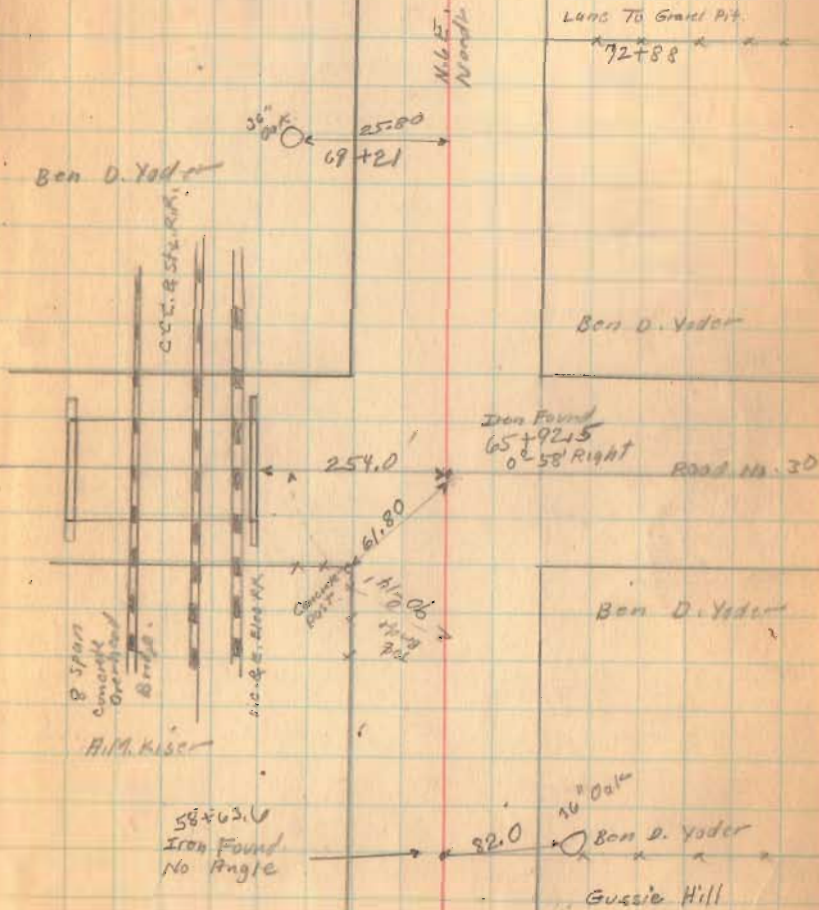 Lane To Gravel Pit.
72+88
N.6E.
North
36"
Oak
25.80
69+21
Ben D. Yoder
C.C.C. & St.L. R.R.
Ben D. Yoder
Iron Found
65+92.5
0°-58' Right
254.0'
Road No. 30
61.80
Concrete
Post
90
Ben D. Yoder
8 Span
Concrete
Overhead
Bridge.
A.M. Kiser
58+63.6
Iron Found
No Angle
82.0'
36" Oak
Ben D. Yoder
Gussie Hill